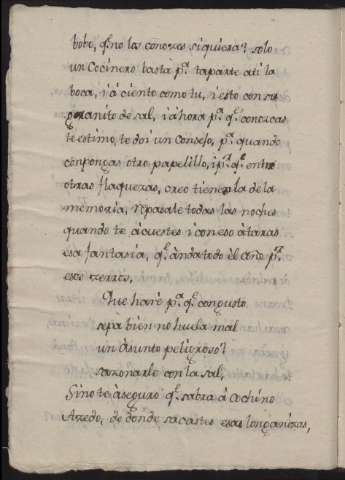 bobo, q.e no las conoces siquiera? solo
un Cocinero basta p.a taparte ati la
boca, i à ciento como tu, i esto con su
granito de sal, i àhora p.a q.e conozcas
te estimo, te doi un Consejo, p.a quando
compongas otro papelillo, i p.r q.e entre
otras flaquezas, creo tienes la de la
memòria, repasale todas las noches
quando te àcuestes i con eso àtaras
esa fantasia, q.e ànda todo èl año p.r
esos zerros.
Que harè p.a q.e congusto
sepa bien no huela mal
un àsunto peligroso?
sazonarle con la sal,
Sino te àseguro q.e sabrà à Cochino
Azedo, de donde sacastes esas longanizas,